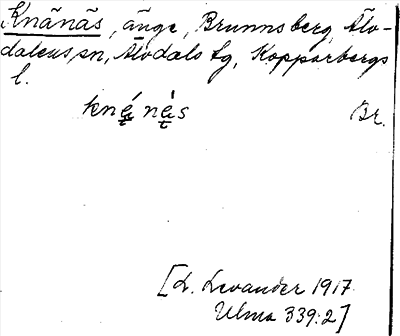 Knãnãs, änge, Brunnsberg, Älv-
dalens sn, Älvdals tg, Kopparbergs
l.
knę́ nę̀s Br.
[L. Levander 1917
Ulma 339:2]